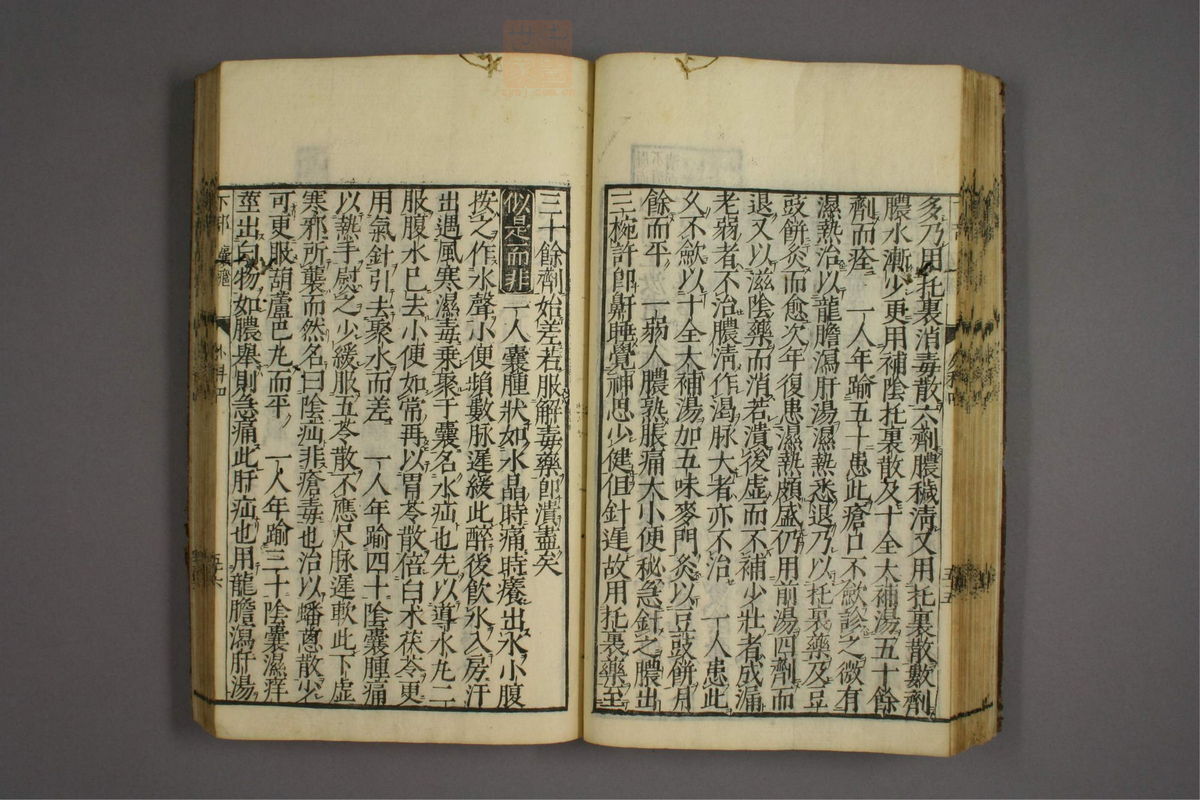 多乃用托裏消毒散六劑膿穢清又用托裏散數劑
膿水漸少更用補陰托裏散及十全大補湯五十餘
劑而痊　一人年踰五十患此瘡口不歛診之微有
濕熱治以龍膽瀉肝湯濕熱悉退乃以托裏藥及豆
豉餅灸而愈次年復患濕熱頗盛仍用前湯四劑而
退又以滋陰藥而消若潰後虛而不補少壯者成漏
老弱者不治膿清作渴脉大者亦不治　一人患此
久不歛以十全大補湯加五味麥門灸以豆豉餅月
餘而平　一弱人膿熟脹痛大小便秘急針之膿出
三椀許卽鼾睡覺神思少健但針遲故用托裏藥至
三十餘劑始差若服解毒藥卽潰盡矣
似是而非　一人囊腫狀如水晶時痛時癢出水小腹
按之作水聲小便頻數脉遲緩此醉後飲水入房汗
出遇風寒濕毒乘聚于囊名水疝也先以導水丸二
服腹水已去小便如常再以胃苓散倍白朮茯苓更
用氣針引去聚水而差　一人年踰四十陰囊腫痛
以熱手慰之少緩服五苓散不應尺脉遲軟此下虛
寒邪所襲而然名曰陰疝非瘡毒也治以蟠葱散少
可更服胡蘆巴丸而平　一人年踰三十陰囊濕痒
莖出白物如膿擧則急痛此肝疝也用龍膽瀉肝湯